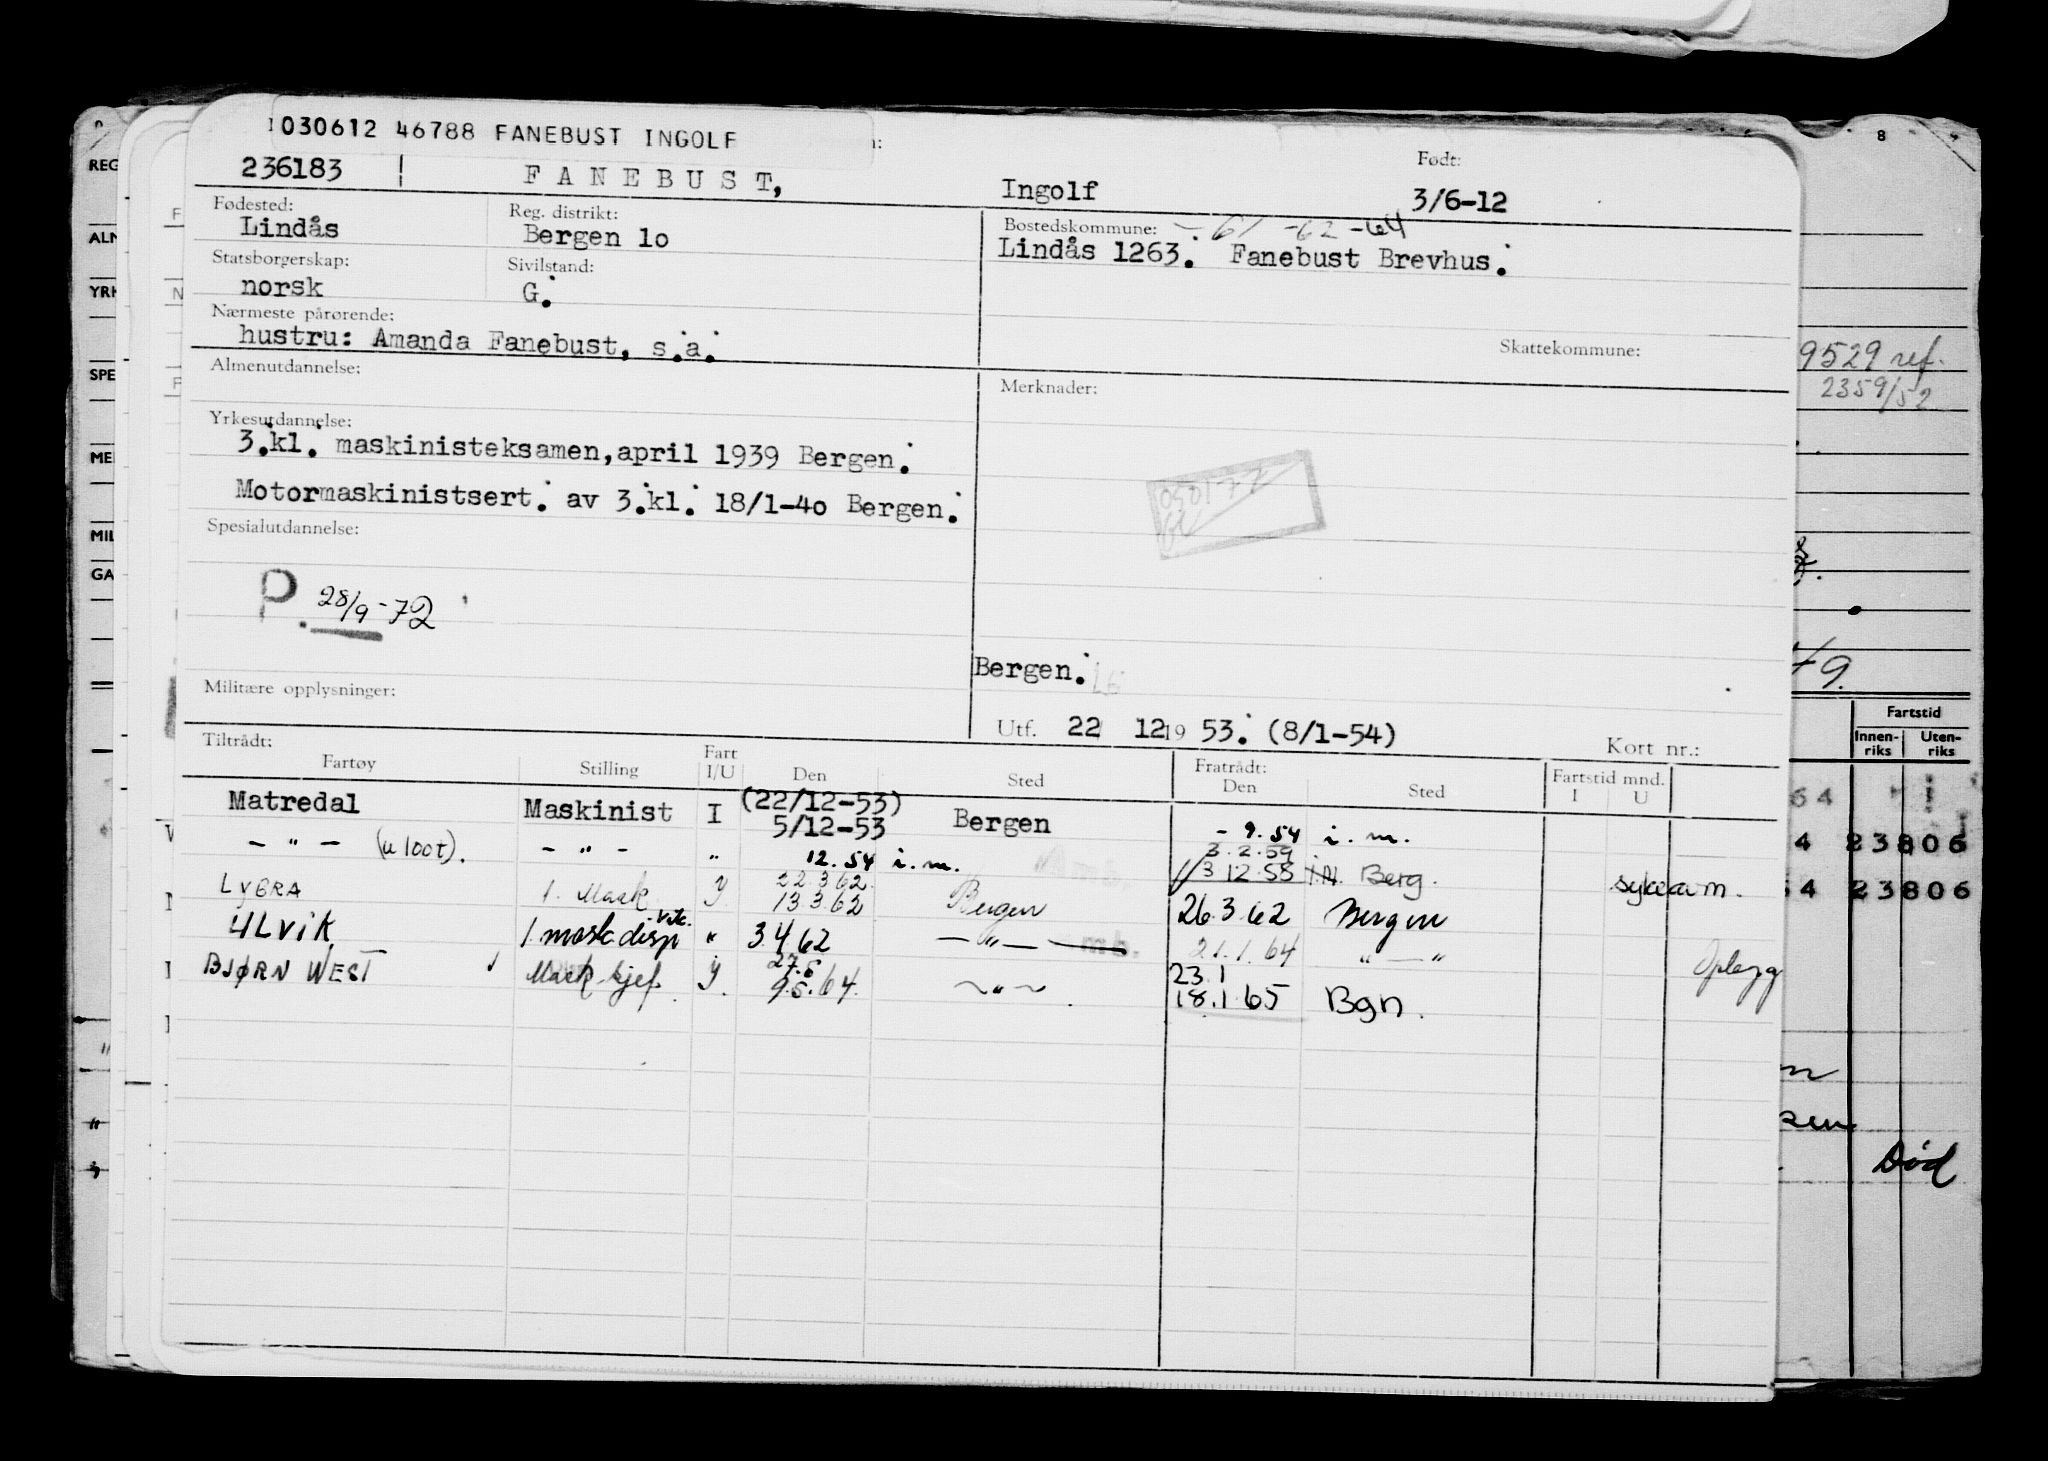 030612 46788 FANEBUST INGOLF
236183 FANEBUST, Ingolf
Født:
3/6-12
Fødested:
Lindås
Reg. distrikt:
Bergen lo
Bostedskommune: -61 -62 -64
Lindås 1263. Fanebust Brevhus.
Statsborgerskap:
norsk
Sivilstand:
G.
Nærmeste pårørende:
hustru: Amanda Fanebust, s.a.
Skattekommune:
Almenutdannelse:
Merknader:
Yrkesutdannelse:
3.kl. maskinisteksamen,april 1939 Bergen.
Motormaskinistsert. av 3.kl. 18/1-4o Bergen.
050177
Spesialutdannelse:
P. 28/9-72
Bergen.
Militære opplysninger:
Utf. 22 12 19 53. (8/1-54)
Kort nr.:
Tiltrådt:
Fartøy Stilling Fart I/U Den Sted
Fratrådt:
Den Sted
Fartstid mnd.
I U
Matredal Maskinist I (22/12-53)
5/12-53 Bergen - 9.54 i.m.
- " - (u loot). - " - " 12.54 i.m. 3.2.59
3 12 58 i.m. Berg. sykeavm.
LYGRA 1. Mask Y 22 3 62
13 3 62 Bergen 26.3.62 Bergen
ULVIK 1.mask disp vik. " 3 4 62 - " - 21.1.64 " - " Oplegg
BJØRN WEST Mask kjef Y 27.5
9.5.64. - " - 23.1
18.1 65 Bgn.
8
REG
ALM
YRK
SPE
MIL
GA
9529 ref.
2359/52
Fartstid
Innen-
riks
Uten-
riks
64
4 23806
54 23806
Død